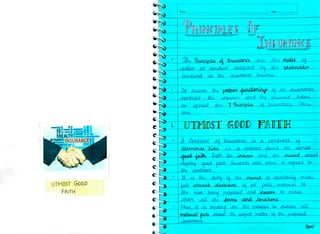 HEALTH
INSURANCE
UTMOST GOOD
FAITH
PRINCIPLES OF
INSURANCE
The Principles of Insurance are the rules of
action or conduct adopted by the
involved in the insurance business.
To ensure the proper functioning of an insurance
contract, the insurer and the insured have
to uphold the 7 Principles of Insurance
UTMOST GOOD FAITH
A Contract of Insurance is a contract of
i.e. a contract found on utmost
good faith. Both the insurer and the insured should
display good faith towards each other in regard to
the contract.
It is the duty of the insured to voluntarily make
full accurate disclosure of all facts, material to
the risk being proposed and insurer to make
clear all the terms and conditions.
Thus, it is binding on the proposer to disclose all
material facts about the subject matter of the proposed
insurance.